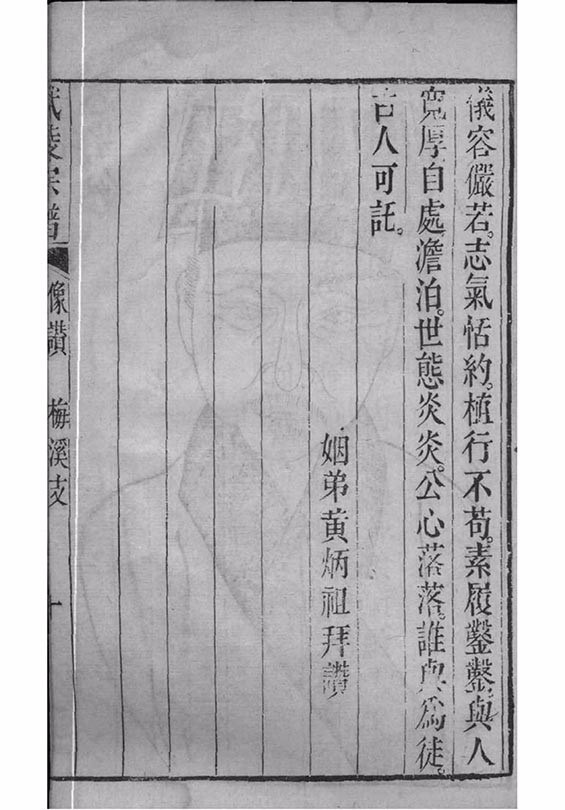 儀容儼若。志氣恬約。植行不苟。素履鑿鑿。與人
寬厚。自處澹泊。世態炎炎。公心落落。誰與為徒。
古人可託。
姻弟黃炳祖拜讚
武陵宗譜
像讚
梅溪支
十